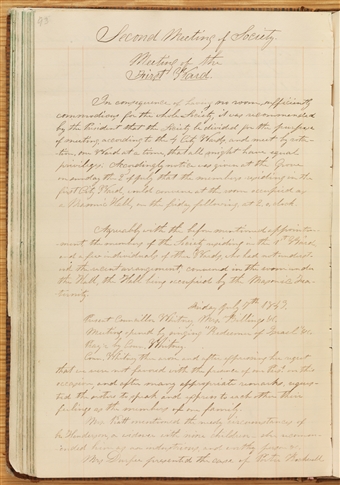 Second Meeting of Society
Meeting of the
First Ward
In consequence of having no room sufficiently
commodious for the whole Society, it was recommended
by the President that the Society be divided for the purpose
of meeting according to the 4 City Wards, and meet by
one Ward at a time, that all might have equal
privileges. Accordingly notice was given at the Grove
on sunday the 2 of July that the members residing in the
first City Ward, could convene at the room occupied as
a Masonic Hall, on the friday following at 2 o'clock.
Agreeably with the before mentioned appointment
the members of the Society residing in the 1st Ward,
and a few individuals of other Wards, who had not
the recent arrangement, convened in the room under
the Hall, the Hall being occupied by the Masonic
Friday July 7th 1843.
Present Counsellor Whitney, Mrs. &c.
Meeting opened by singing "Redeemer of Israel" &c
by Coun. Whitney.
Coun. Whitney then arose and after expressing her regret
that we were not favored with the presence of on this
occasion, and after many appropriate remarks,
the sisters to speak and express to each other their
feelings as the members of one family.
Mrs. mentioned the needy circumstances of
Mr. Henderson, a widower with nine children, she
him as an industrious and worthy
Mrs. Durfee presented the case of Sister